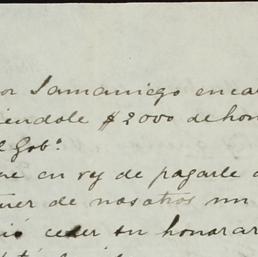 or Samaniego encar
iendole $2000 de hon
l Gobº
ue en vez de pagarle a
tuer de nosotros un
ió ceder su honorar